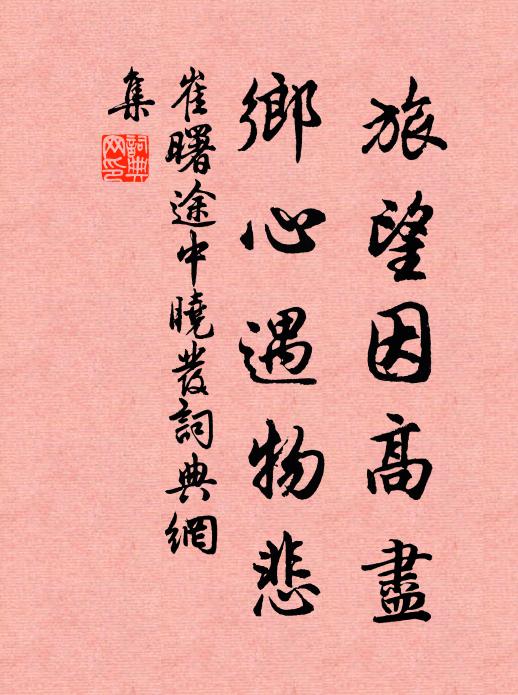 旅望因高盡
鄉心遇物悲
崔曙途中曉發詞典網
集
詞典
网印